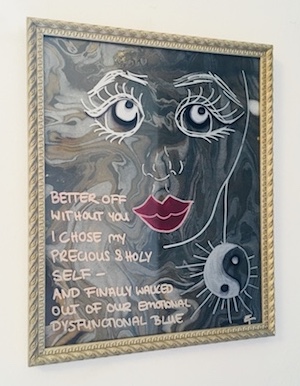 BETTER OFF
WITHOUT YOU
I CHOSE MY
PRECIOUS & HOLY
SELF –
AND FINALLY WALKED
OUT OF OUR EMOTIONAL
DYSFUNCTIONAL BLUE